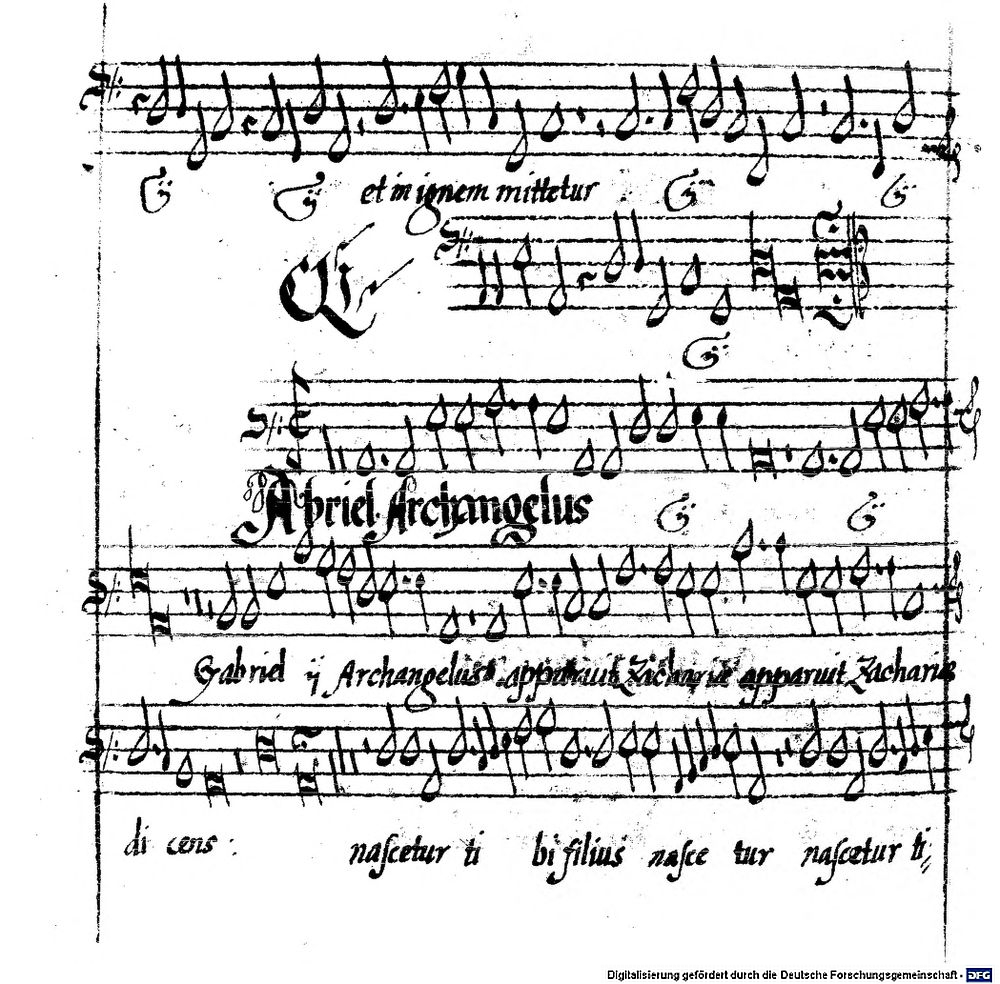 ij ij et in ignem mittetur ij ij
ij
Abriel Archangelus ij ij
Gabriel ij Archangelus apparuit Zachariæ apparuit Zachariæ
di cens : nascetur ti bi filius nasce tur nascetur ti
Digitalisierung gefördert durch die Deutsche Forschungsgemeinschaft - DFG